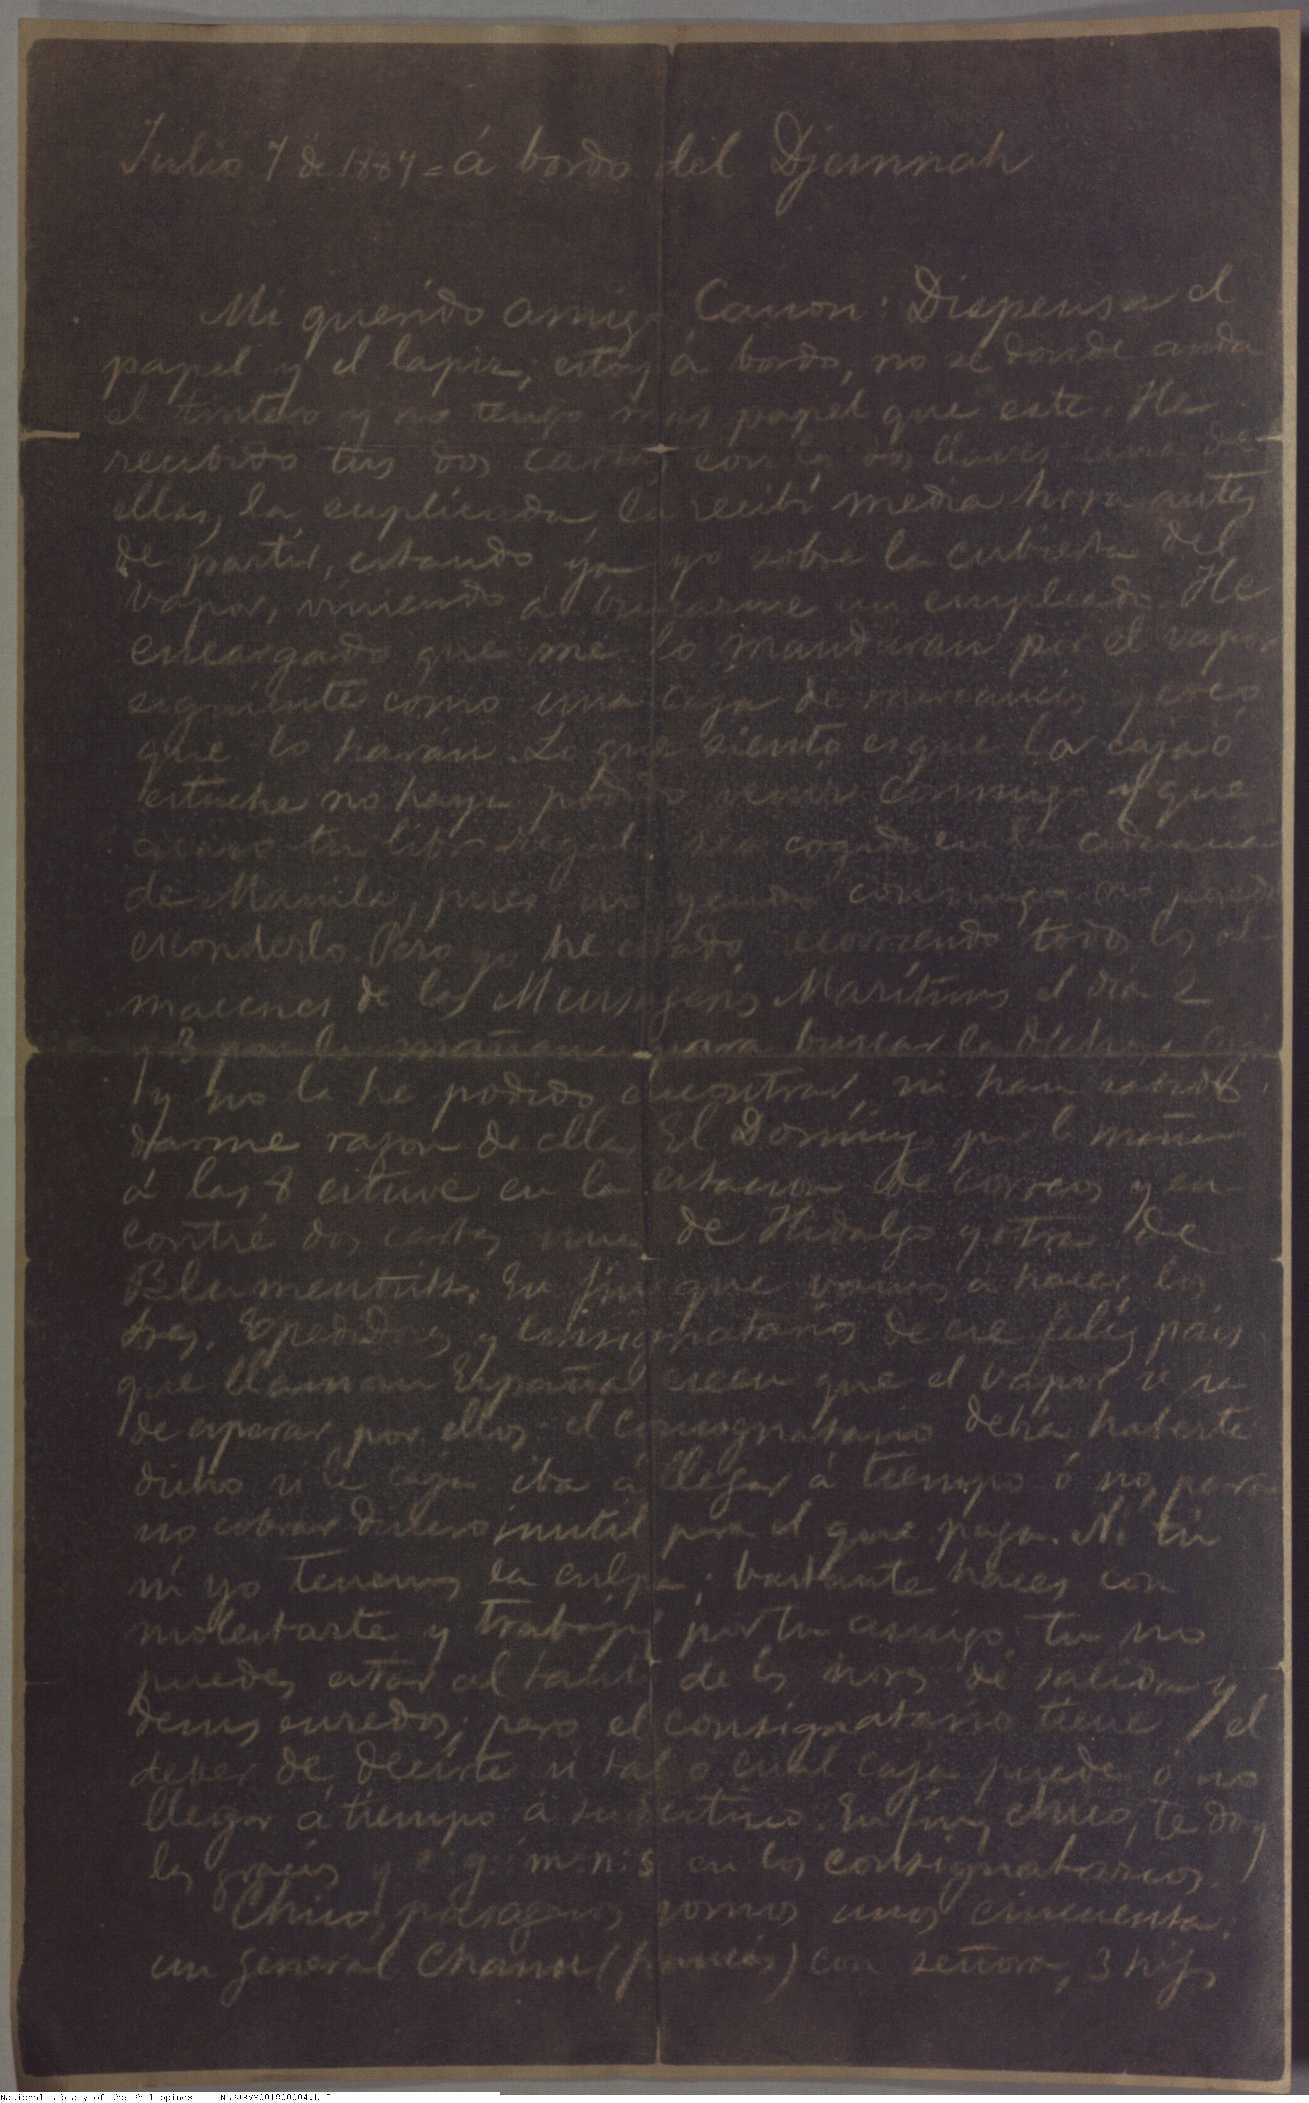 Julio 7 de 1887 = á bordo del Djemnah
Mi querido amigo Canon: Dispensa el
papel y el lapiz, estoy á bordo, no sé donde anda
el tintero y no tengo mas papel que este. He
recibido tus dos cartas con las dos llaves una de
ellas, la suplicada, la recibí media hora antes
de partir, estando ya yo sobre la cubierta del
vapor, viniendo á buscarme un empleado. He
encargado que me lo mandaran por el vapor
siguiente como una caja de mercancías y creo
que lo harán. Lo que siento es que la caja ó
estuche no haya podido venir conmigo y que
acaso tu sea cogido en la aduana
de Manila, pues no yendo conmigo no puedo
esconderlo. Pero yo he estado recorriendo todos los al-
macenes de las Mensageries Maritimes el día 2
y 3 por la mañana para buscar la dicha caja
y no la he podido encontrar, ni han sabido
darme razon de ella. El Domingo por la mañana
á las 8 estuve en la estacion de correos y en-
contré dos cartas una de Hidalgo y otra de
Blumentritt. En fin que vamos á hacer los
tres. Expedidores y consignatarios de ese feliz país
que llaman España creen que el vapor se ha
de esperar por ellos: el consignatario debía haberte
dicho si la caja iba á llegar á tiempo ó no, para
no cobrar dinero inutil para el que paga. Ni tú
ni yo tenemos la culpa; bastante haces con
molestarte y trabajar por tu amigo: tu no
puedes estar al tanto de las horas de salida y
demas enredos; pero el consignatario tiene el
deber de decirte si tal o cual caja puede ó no
llegar á tiempo á su destino. En fin, chico, te doy
las gracias y en los consignatarios.
Chico, pasageros somos unos cincuenta:
un general Chanu (francés) con señora, 3 hijos